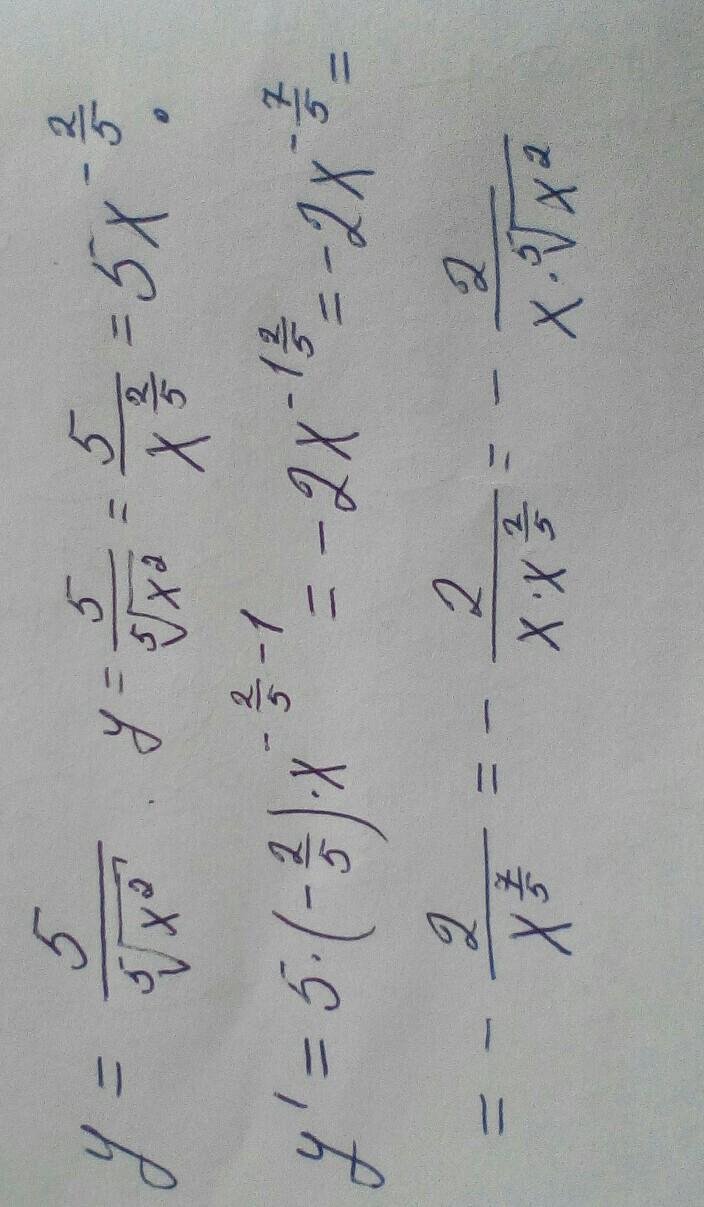 y = 5/⁵√x² . y = 5/⁵√x² = 5/x^(2/5) = 5x^(-2/5) .
y' = 5·(-2/5)·x^(-2/5-1) = -2x^(-1 2/5) = -2x^(-7/5) =
= - 2/x^(7/5) = - 2/(x·x^(2/5)) = - 2/(x·⁵√x²)